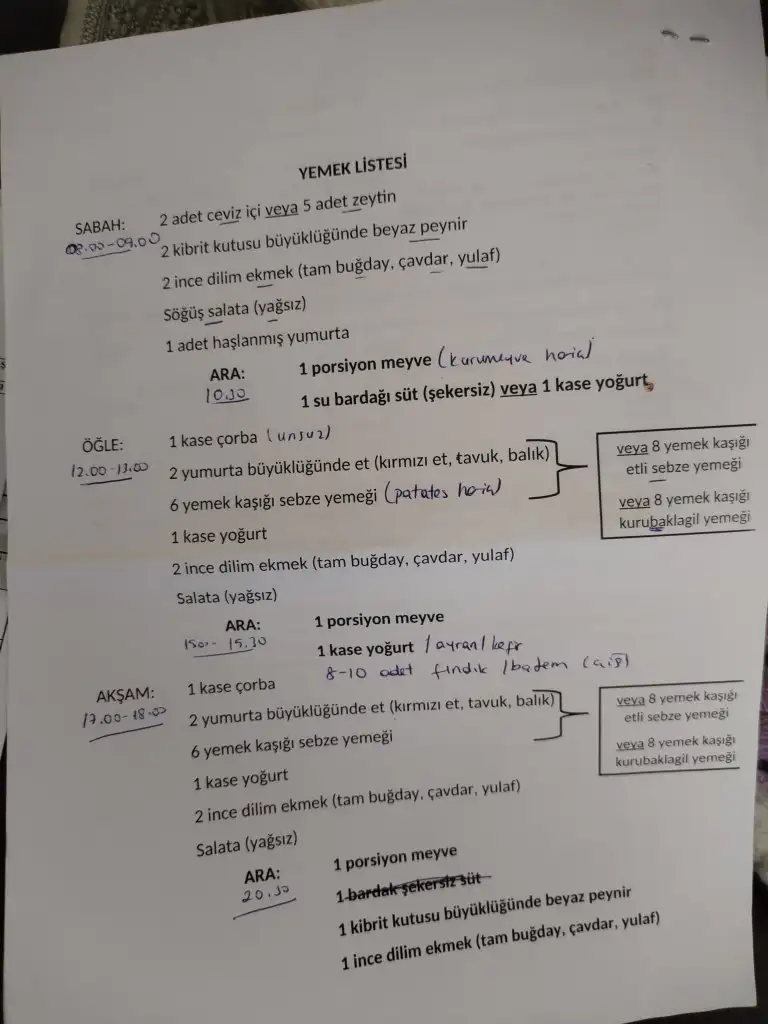 YEMEK LİSTESİ
SABAH: 2 adet ceviz içi veya 5 adet zeytin
08.00-09.00
2 kibrit kutusu büyüklüğünde beyaz peynir
2 ince dilim ekmek (tam buğday, çavdar, yulaf)
Söğüş salata (yağsız)
1 adet haşlanmış yumurta
ARA: 1 porsiyon meyve (kurumeyve hariç)
10.30
1 su bardağı süt (şekersiz) veya 1 kase yoğurt
ÖĞLE: 1 kase çorba (unsuz)
12.00-13.00
2 yumurta büyüklüğünde et (kırmızı et, tavuk, balık)
6 yemek kaşığı sebze yemeği (patates hariç)
veya 8 yemek kaşığı
etli sebze yemeği
veya 8 yemek kaşığı
kurubaklagil yemeği
1 kase yoğurt
2 ince dilim ekmek (tam buğday, çavdar, yulaf)
Salata (yağsız)
ARA: 1 porsiyon meyve
15.00-15.30
1 kase yoğurt / ayran / kefir
8-10 adet fındık / badem (çiğ)
AKŞAM: 1 kase çorba
17.00-18.00
2 yumurta büyüklüğünde et (kırmızı et, tavuk, balık)
6 yemek kaşığı sebze yemeği
veya 8 yemek kaşığı
etli sebze yemeği
veya 8 yemek kaşığı
kurubaklagil yemeği
1 kase yoğurt
2 ince dilim ekmek (tam buğday, çavdar, yulaf)
Salata (yağsız)
ARA: 1 porsiyon meyve
20.30
1 bardak şekersiz süt
1 kibrit kutusu büyüklüğünde beyaz peynir
1 ince dilim ekmek (tam buğday, çavdar, yulaf)